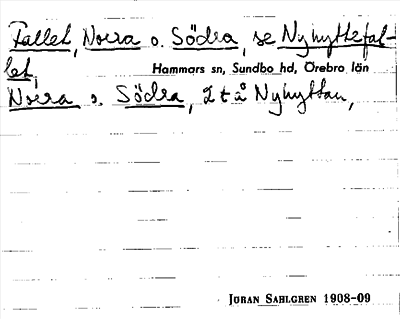 Fallet, Norra o. Södra, se Nyhyttefal-
let,
Hammars sn, Sundbo hd, Örebro län
Norra o. Södra, 2 t å Nyhyttan,
JÖRAN SAHLGREN 1908-09